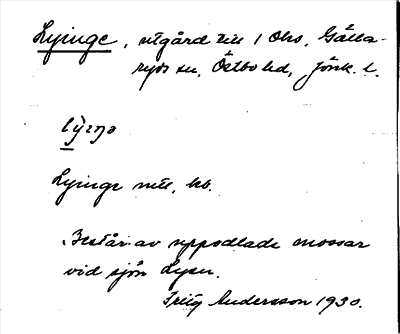 Lyinge, utgård till 1 Ohs, Gälla-
ryds sn, Östbo hd, Jönk. l.
Lyinge mtl, kb.
Består av uppodlade mossar
vid sjön Lyen.
Fritz Andersson 1930.